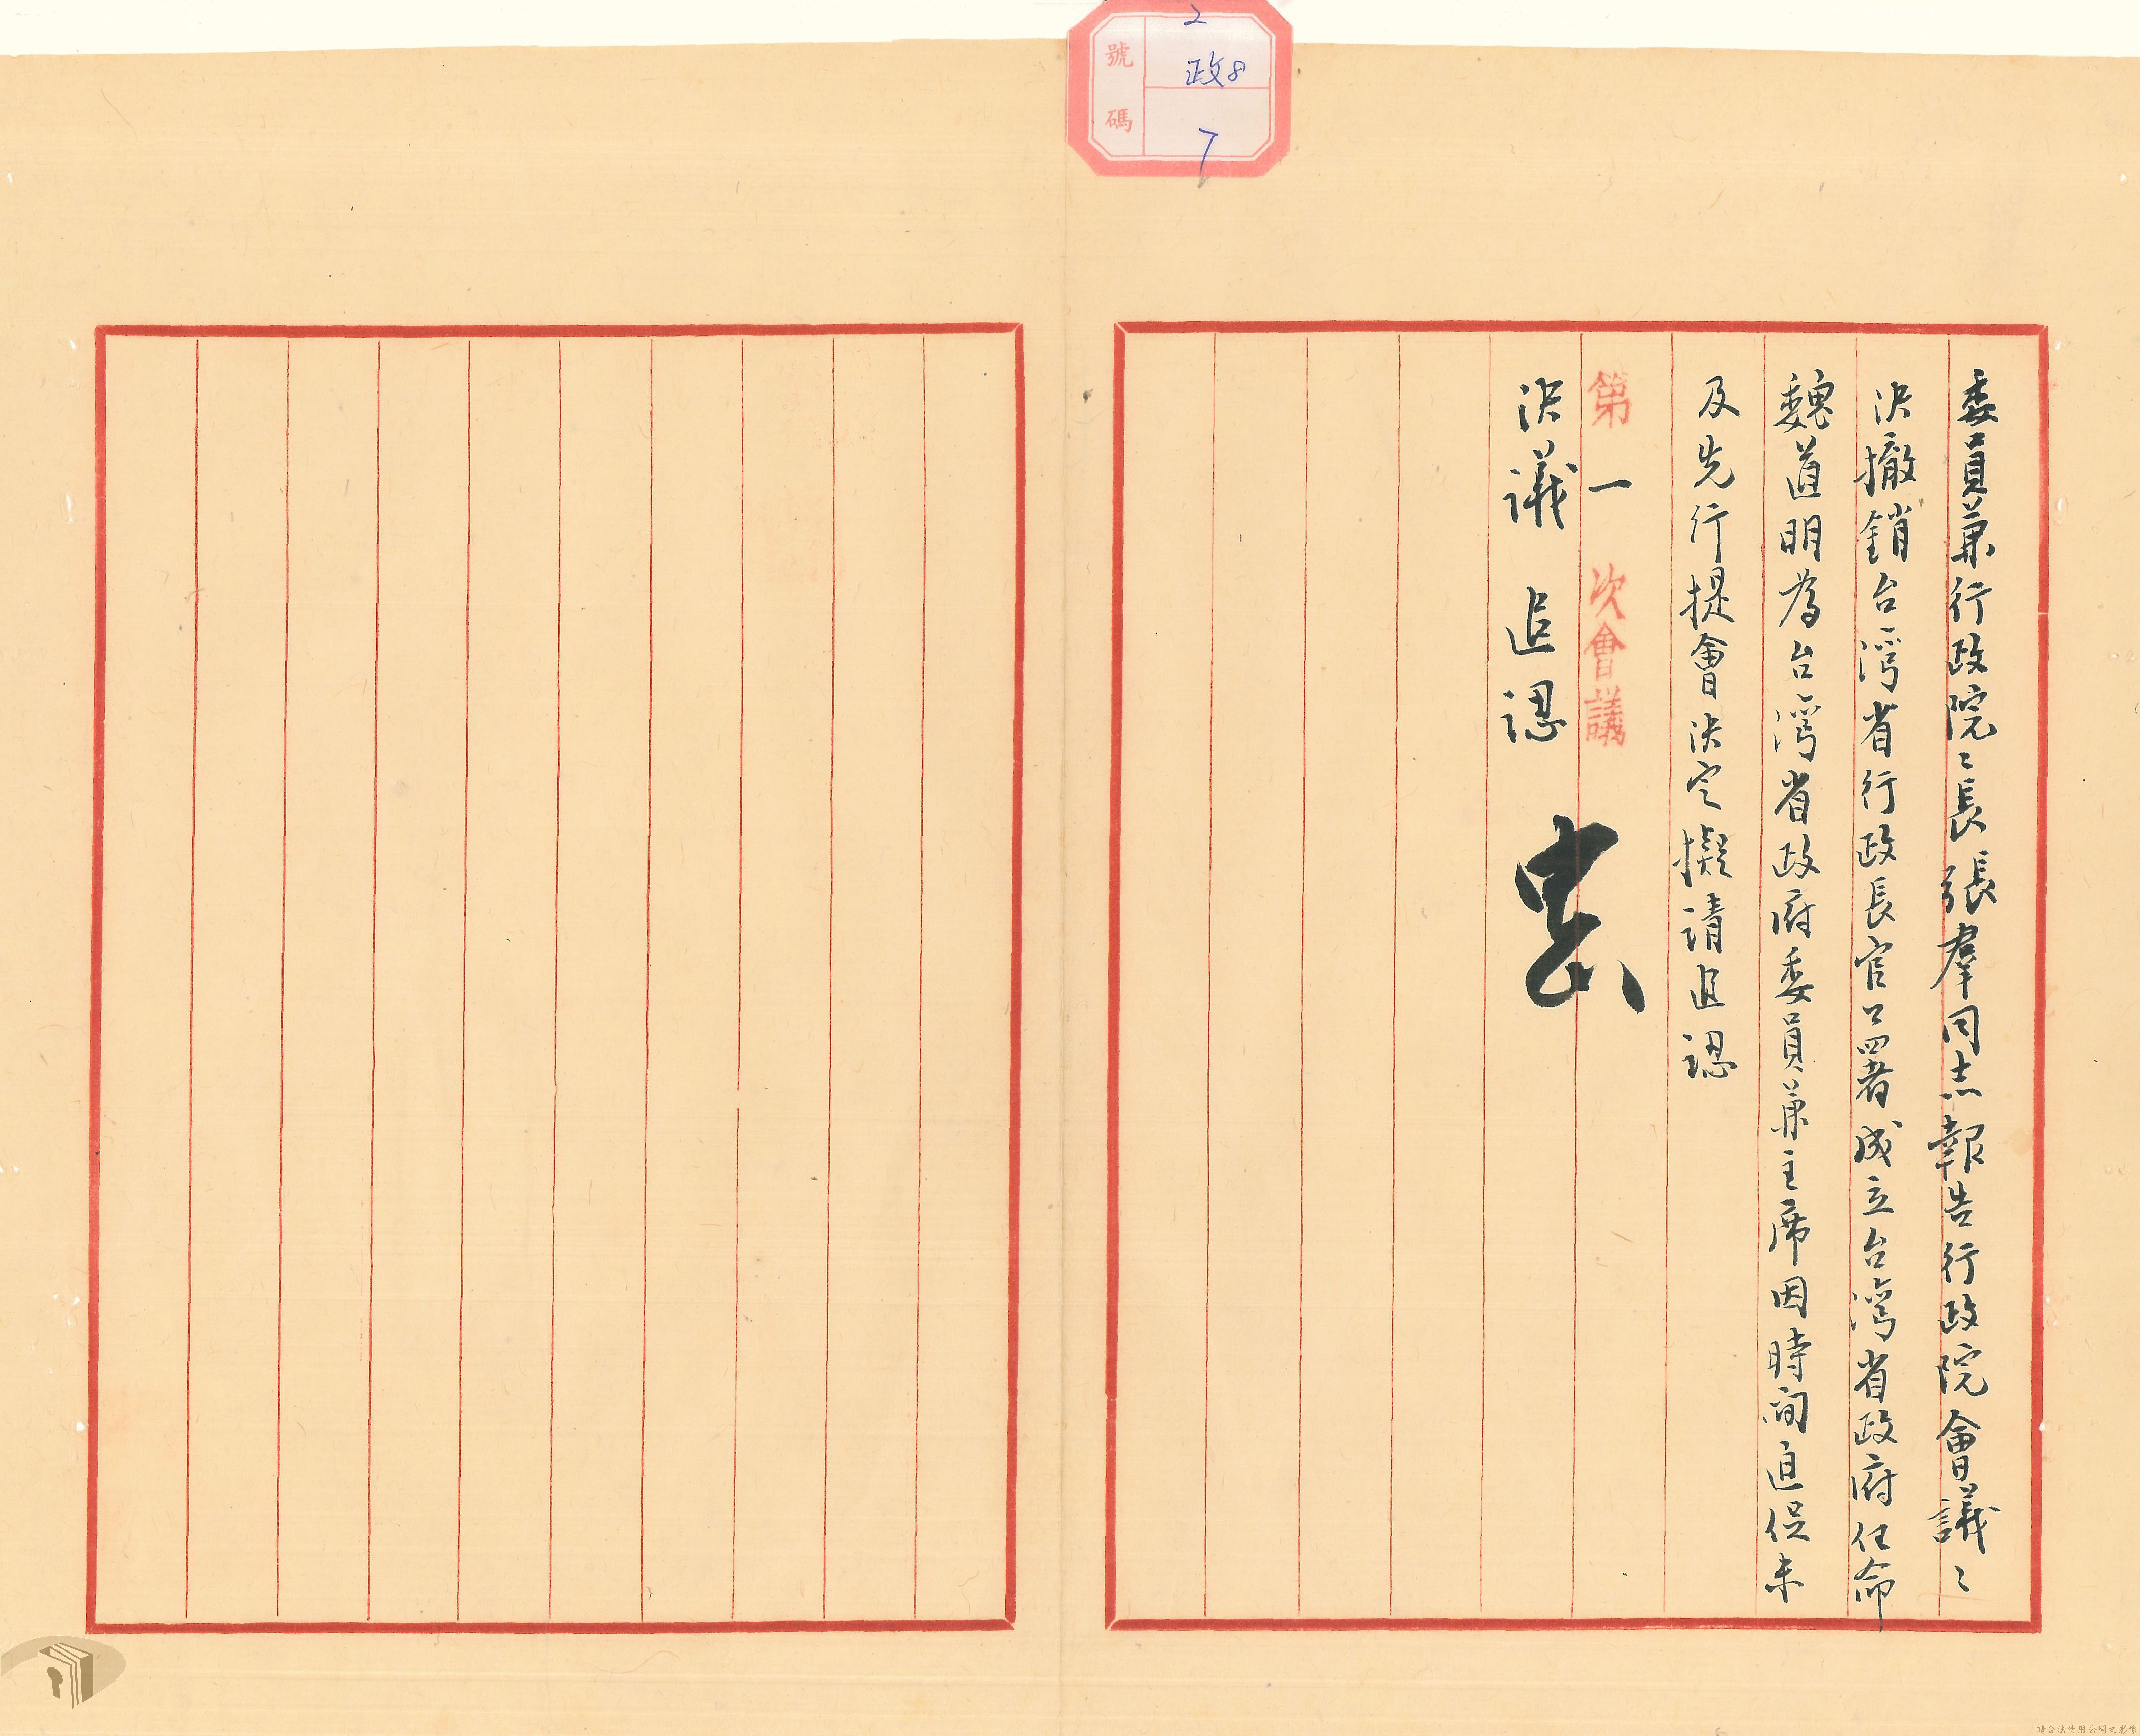 號碼
2
政8
7
委員兼行政院〻長張羣同志報告行政院會議〻
決撤銷台灣省行政長官公署成立台灣省政府任命
魏道明為台灣省政府委員兼主席因時間迫促未
及先行提會決定擬請追認
第一次會議
決議 追認
請合法使用公開之影像